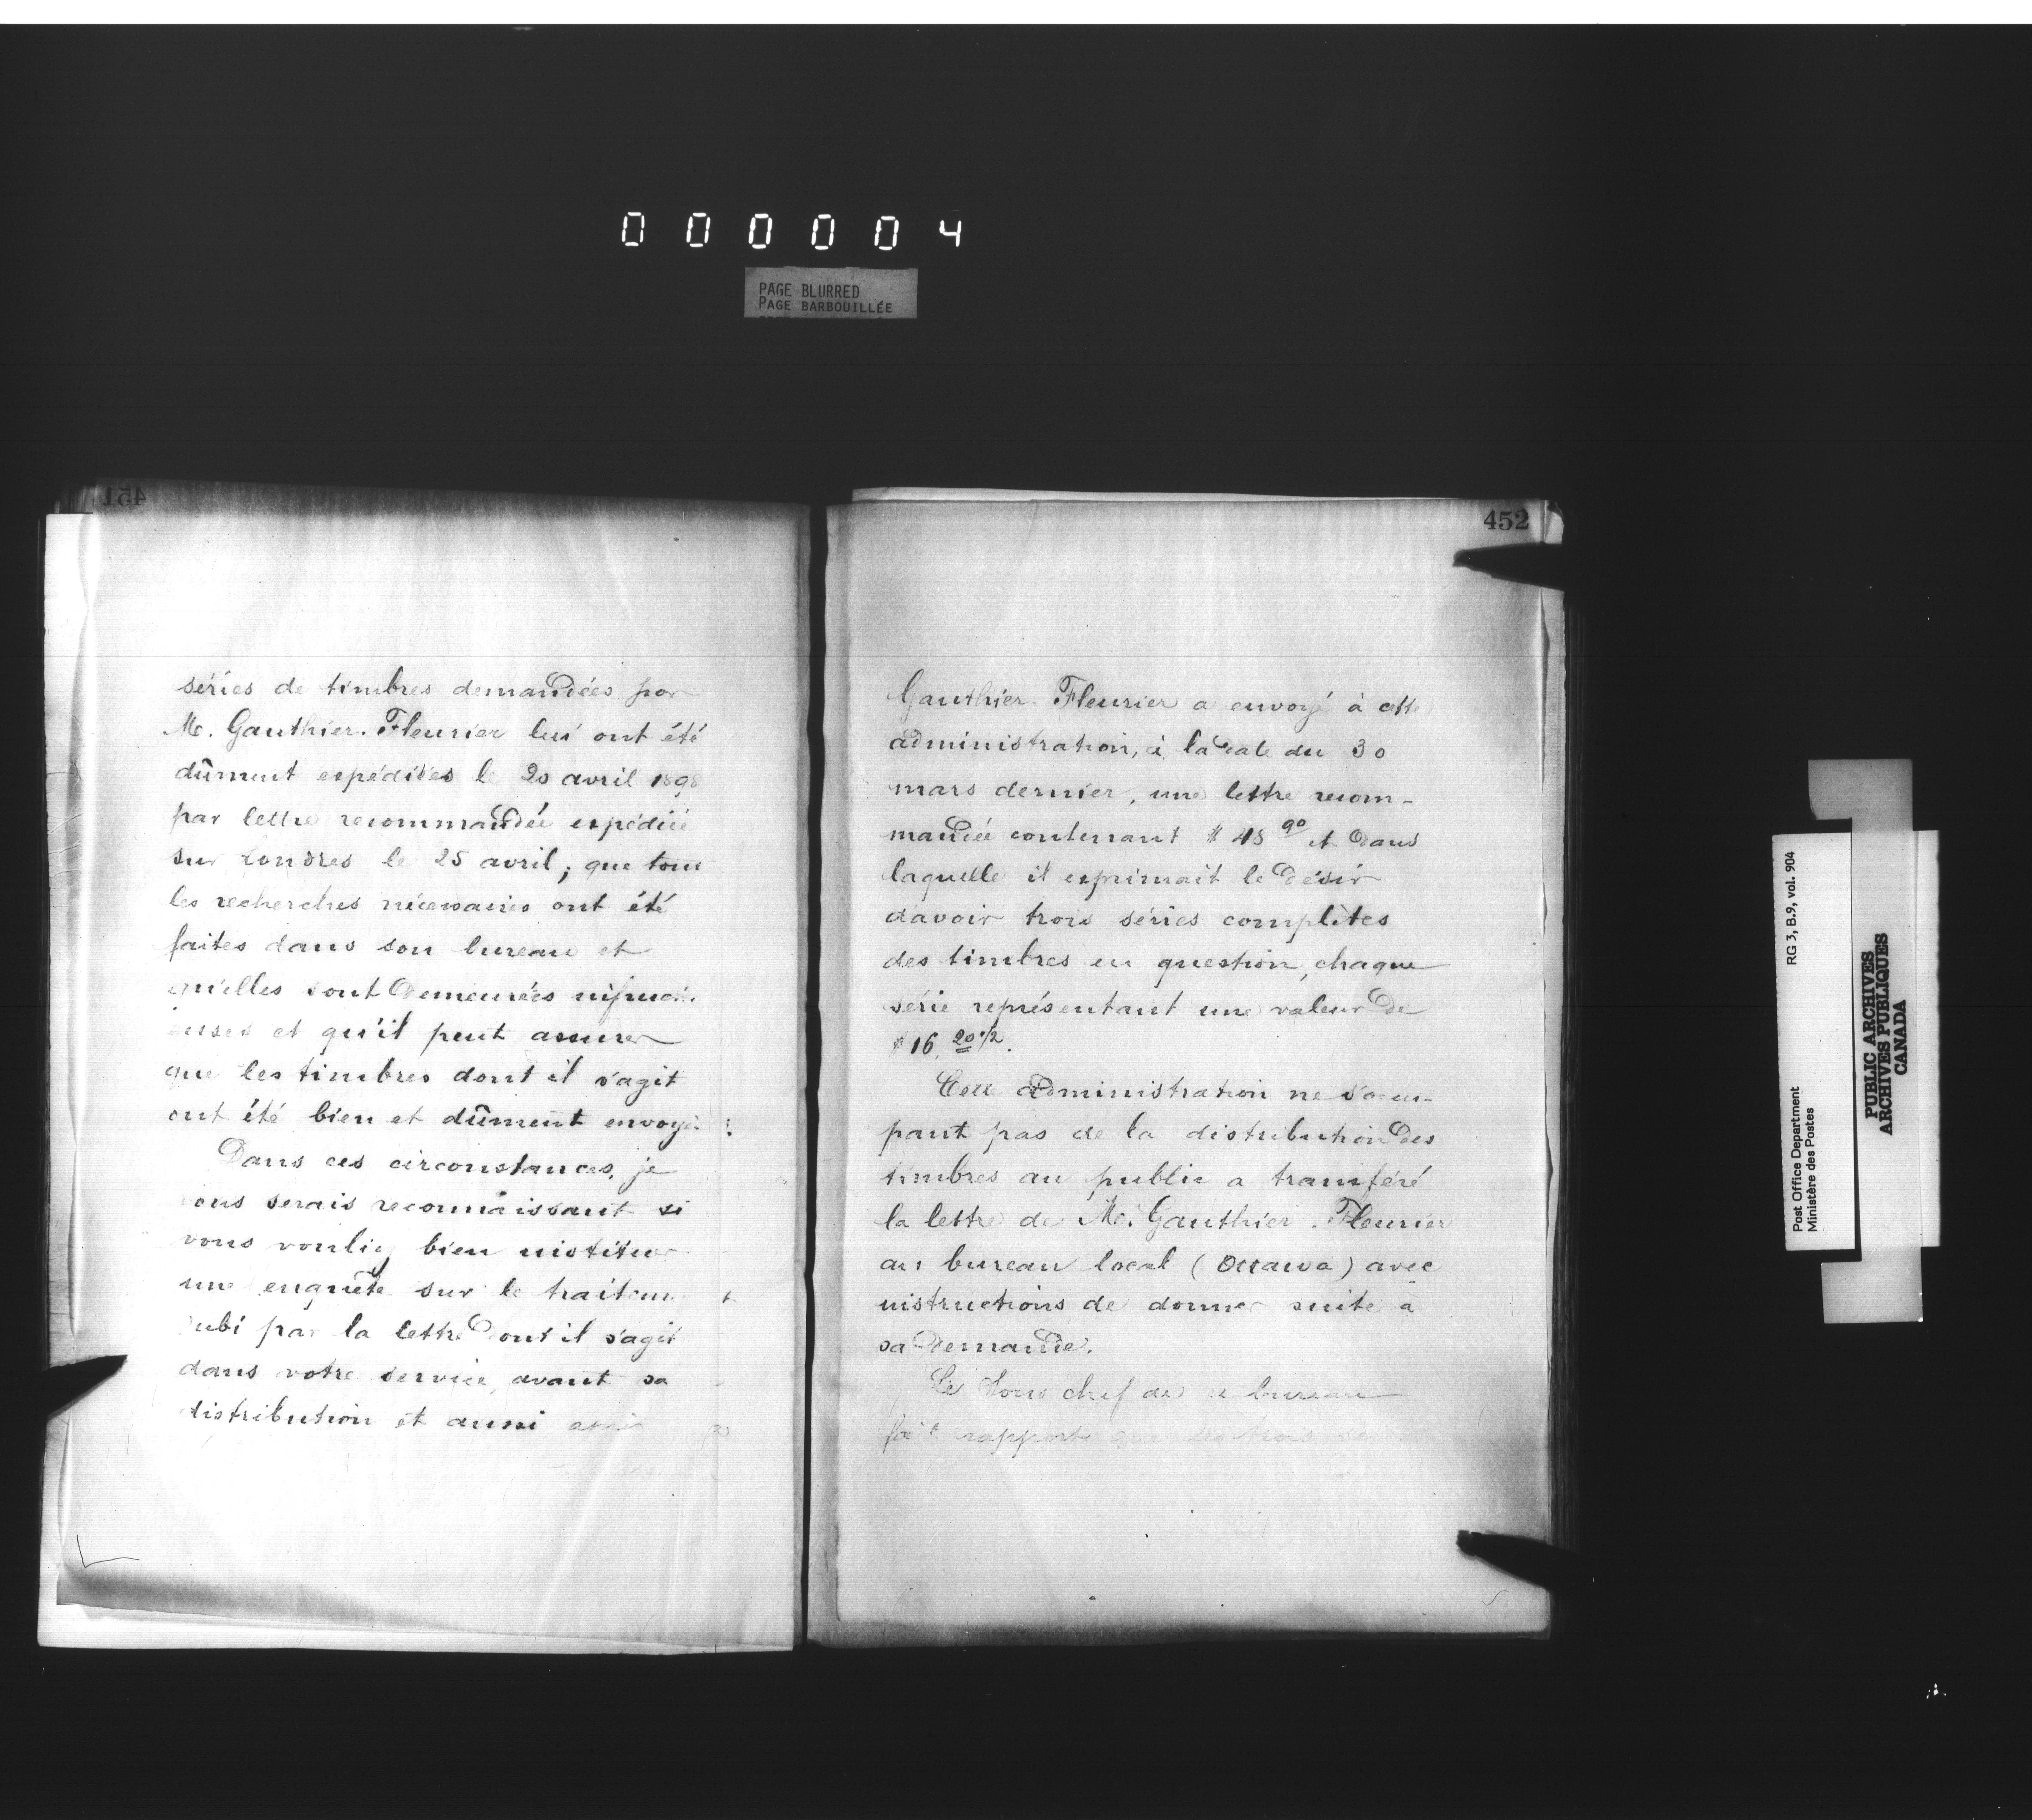 000004
PAGE BLURRED
PAGE BARBOUILLÉE
451
séries de timbres demandées par
M. Gauthier-Fleurier lui ont été
dûment expédiées le 20 avril 1898
par lettre recommandée expédiée
sur Londres le 25 avril; que tous
les recherches nécessaires ont été
faites dans son bureau et
qu'elles sont demeurées infructu-
euses et qu'il peut assurer
que les timbres dont il s'agit
ont été bien et dûment envoyés
Dans ces circonstances, je
vous serais reconnaissant si
vous vouliez bien instituer
une enquête sur le traitement
subi par la lettre dont il s'agit
dans votre service, avant sa
distribution et aussi
452
Gauthier-Fleurier a envoyé à cette
administration, à la date du 30
mars dernier, une lettre recom-
mandée contenant $ 48 90 et dans
laquelle il exprimait le désir
d'avoir trois séries complètes
des timbres en question, chaque
série représentant une valeur de
$ 16. 20 1/2.
Cette administration ne s'occu-
pant pas de la distribution des
timbres au public a transféré
la lettre de M. Gauthier-Fleurier
au bureau local (Ottawa) avec
instructions de donner suite à
sa demande.
Le Sous chef de ce bureau
fait rapport que les trois
Post Office Department
Ministère des Postes
RG 3, B.9, vol. 904
PUBLIC ARCHIVES
ARCHIVES PUBLIQUES
CANADA